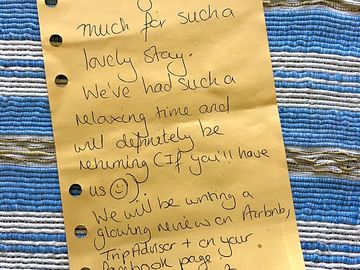 much for such a
lovely stay.
We've had such a
relaxing time and
will definitely be
returning (If you'll have
us ☺).
We will be writing a
glowing review on Airbnb,
TripAdvisor + on your
Facebook page!